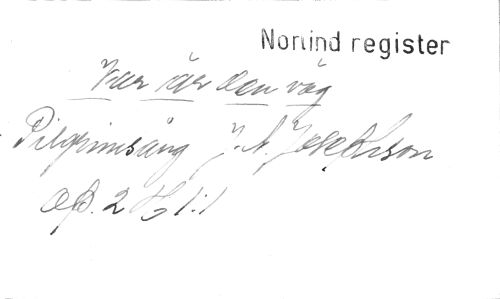 Norlind register
Var är den väg
Pilgrimsång J. A. Josephson
op. 2 H 1:1